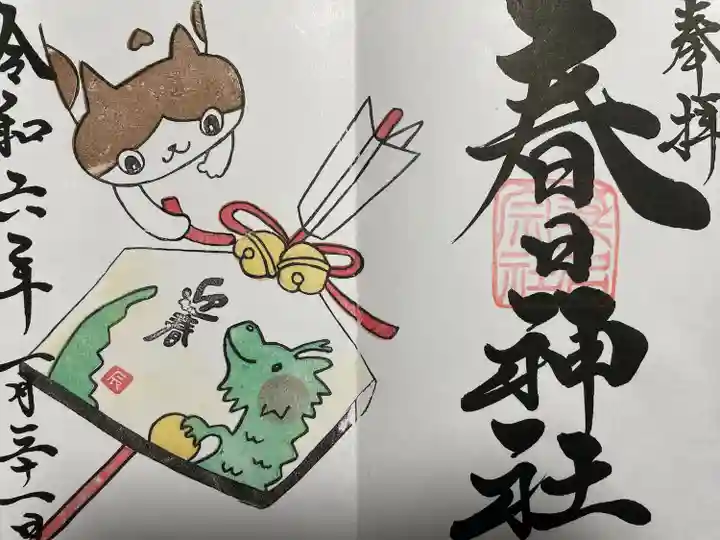 奉拝
春日神社
迎春
辰
令和六年一月三十一日